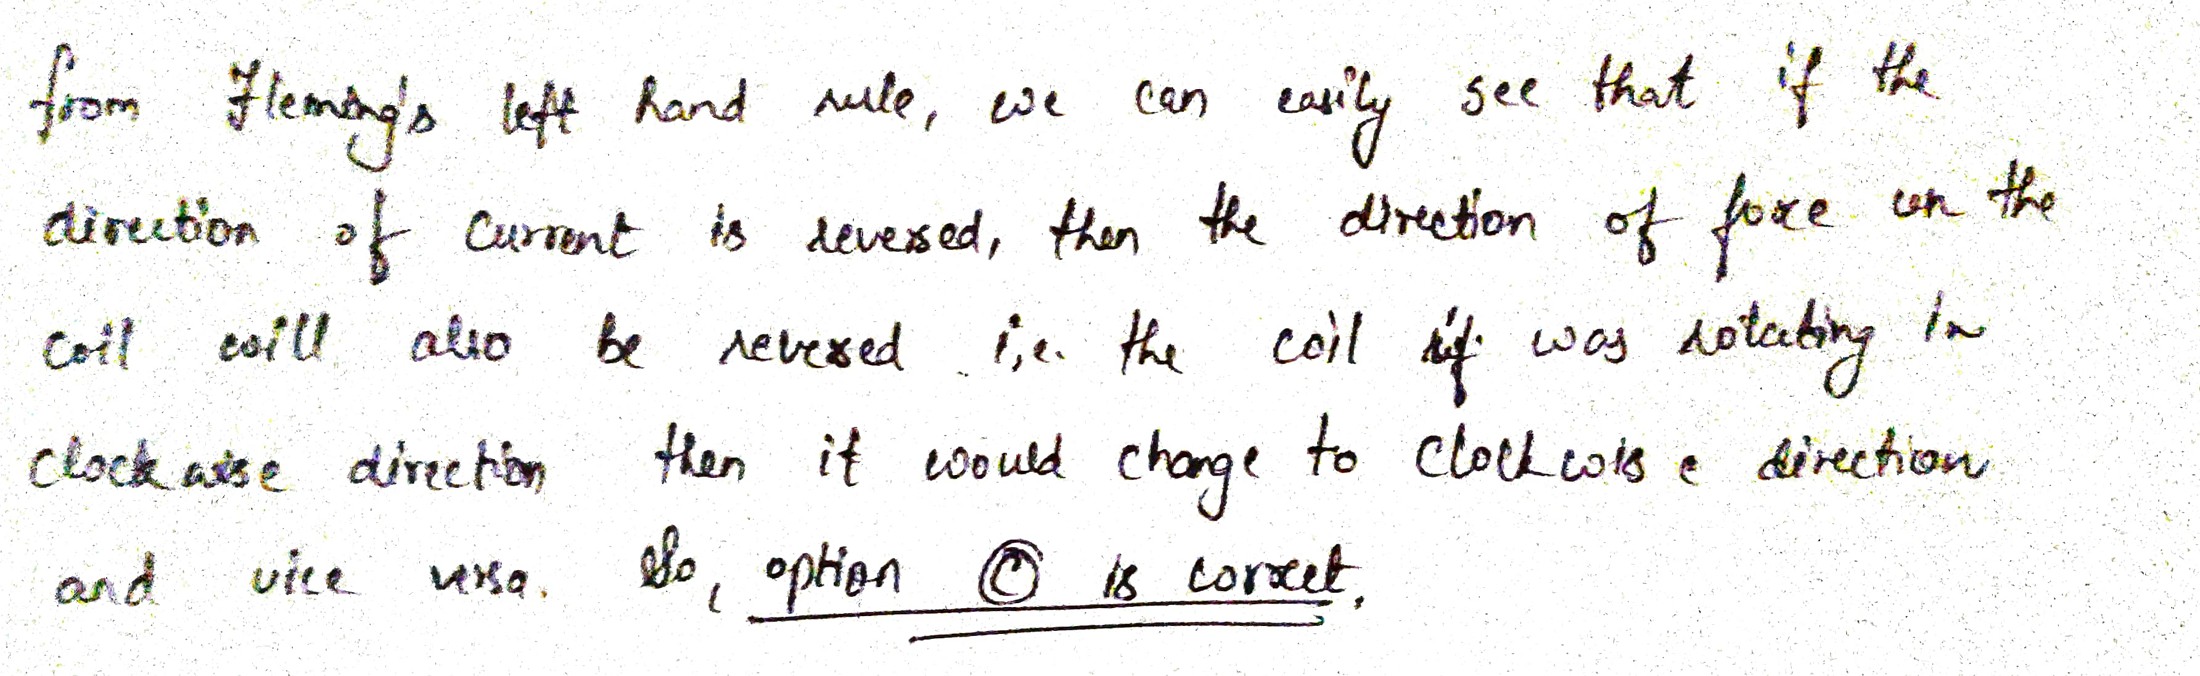 from Fleming's left hand rule, we can easily see that if the
direction of current is reversed, then the direction of force on the
coil will also be reversed i.e. the coil if was rotating in
clockwise direction then it would change to clockwise direction
and vice versa. So, option © is correct.